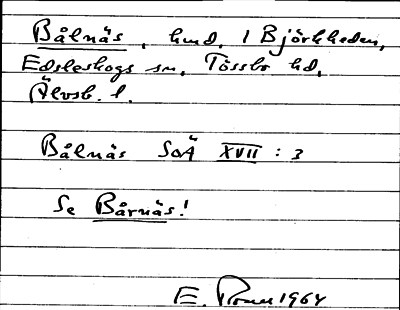 Bålnäs, hmd. i Björkheden,
Edsleskogs sn, Tössbo hd,
Älvsb. l.
Bålnäs SOÄ XVII : 3
Se Bårnäs!
E. 1964